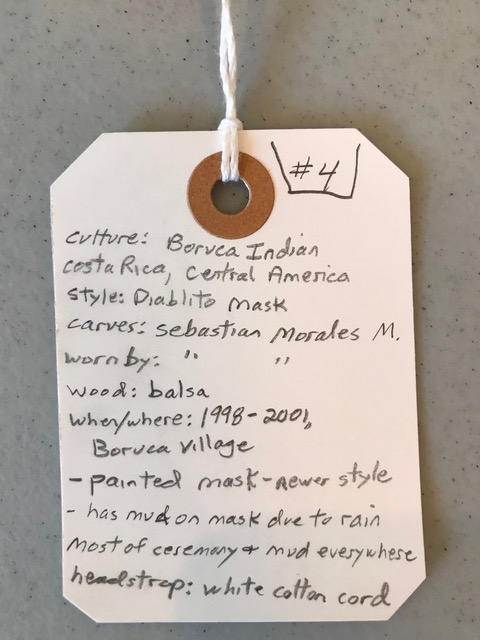 #4
culture: Boruca Indian
Costa Rica, Central America
style: Diablito mask
carver: Sebastian Morales M.
worn by: " "
wood: balsa
when/where: 1998-2001,
Boruca Village
- painted mask - newer style
- has mud on mask due to rain
most of ceremony & mud everywhere
headstrap: white cotton cord